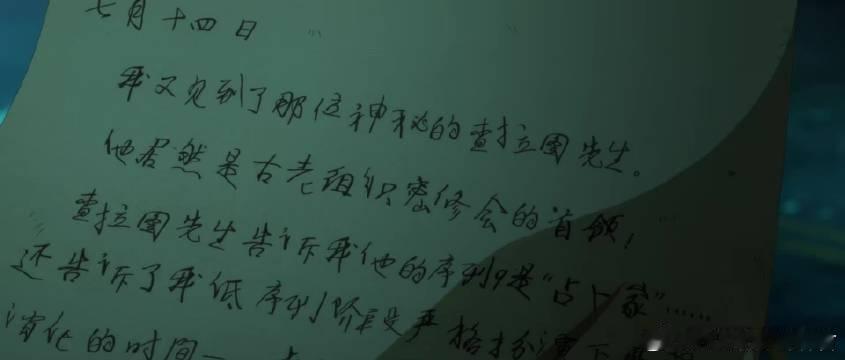 七月十四日
我又见到了那位神秘的查拉图先生。
他居然是古老组织密修会的首领，
查拉图先生告诉我他的序列9是“占卜家”……
还告诉了我低序列阶段是严格
消化的时间